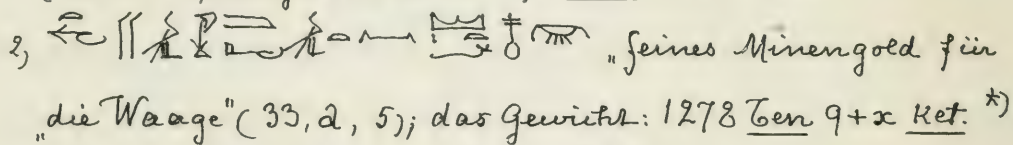 2, „feines Minengold für
„die Waage" (33, 2, 5); das Gewicht: 1278 Ten 9+x Ket. *)